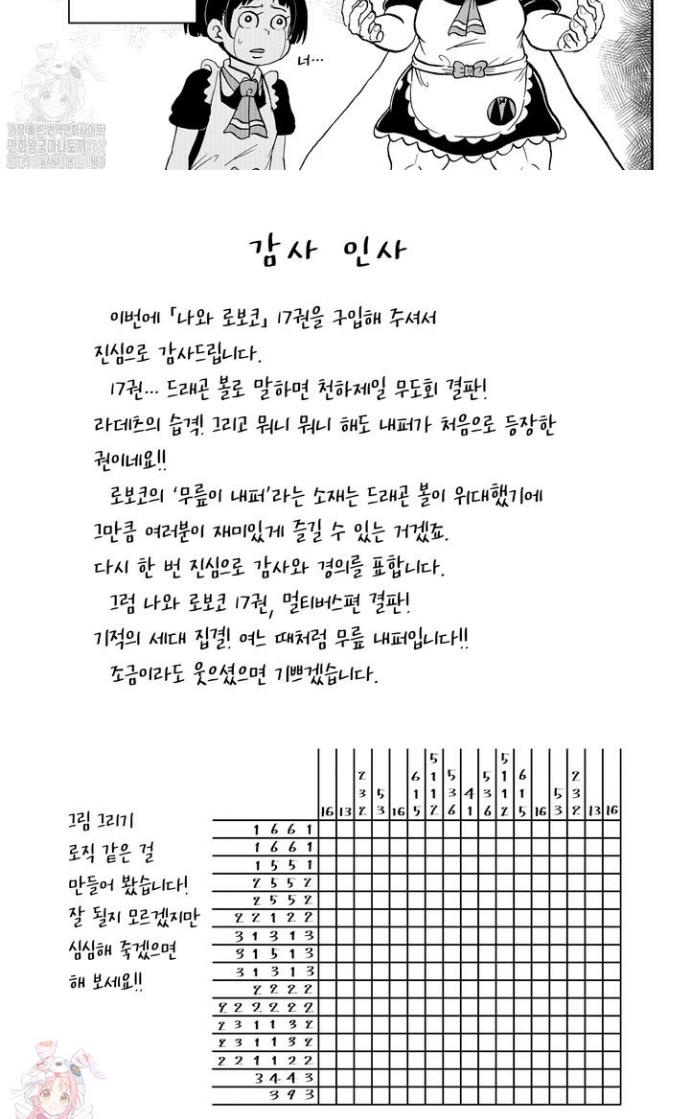 너…
가장빠른번역만화사이트
만화왕국마나토끼
HTTPS://MANATOKI
감사 인사
이번에 「나와 로보코」 17권을 구입해 주셔서
진심으로 감사드립니다.
17권… 드래곤 볼로 말하면 천하제일 무도회 결판!
라데츠의 습격! 그리고 뭐니 뭐니 해도 내퍼가 처음으로 등장한
권이네요!!
로보코의 '무릎이 내퍼'라는 소재는 드래곤 볼이 위대했기에
그만큼 여러분이 재미있게 즐길 수 있는 거겠죠.
다시 한 번 진심으로 감사와 경의를 표합니다.
그럼 나와 로보코 17권, 멀티버스편 결판!
기적의 세대 집결! 여느 때처럼 무릎 내퍼입니다!!
조금이라도 웃으셨으면 기쁘겠습니다.
그림 그리기
로직 같은 걸
만들어 봤습니다!
잘 될지 모르겠지만
심심해 죽겠으면
해 보세요!!
5 5
2 6 1 5 5 1 6 2
3 5 1 1 3 4 3 1 1 5 3
16 13 2 3 16 5 2 6 1 6 2 5 16 3 2 13 16
1 6 6 1
1 6 6 1
1 5 5 1
2 5 5 2
2 5 5 2
2 2 1 2 2
3 1 3 1 3
3 1 5 1 3
3 1 3 1 3
2 2 2 2
2 2 2 2 2 2
2 3 1 1 3 2
2 3 1 1 3 2
2 2 1 1 2 2
3 4 4 3
3 9 3